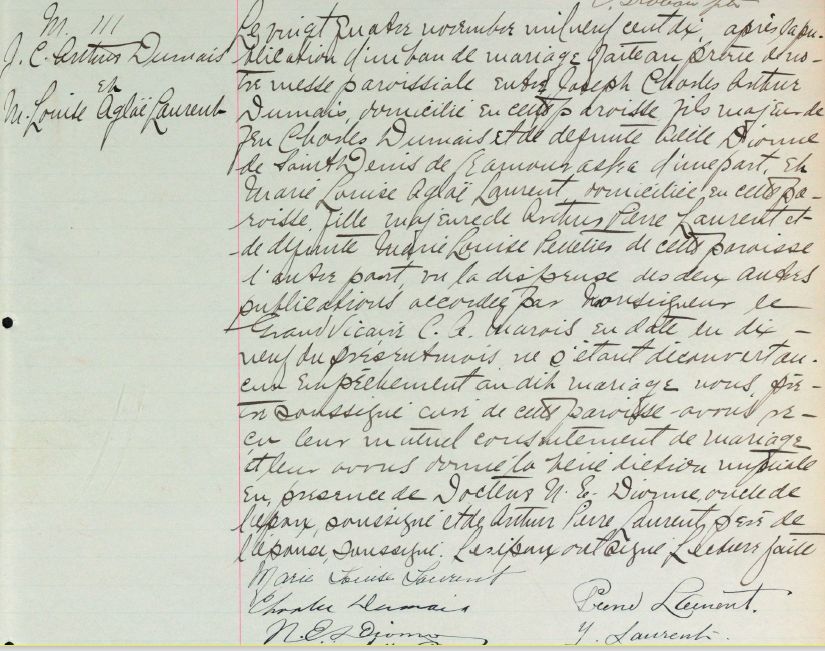 M. 111
J. C. Arthur Dumais
et
M. Louise Aglaë Laurent
Le vingt quatre novembre mil neuf cent dix, après la pu-
blication d'un ban de mariage faite au prône de no-
tre messe paroissiale entre Joseph Charles Arthur
Dumais, domicilié en cette paroisse fils majeur de
feu Charles Dumais et de defunte Adèle Dionne
de Saint Denis de Kamouraska d'une part, et
Marie Louise Aglaë Laurent, domiciliée en cette pa-
roisse, fille majeure de Arthur Pierre Laurent et
de defunte Marie Louise Pelletier de cette paroisse
l'autre part, vu la dispense des deux autres
publications accordée par Monsigneur le
Grand Vicaire C. A. Marois en date en dix-
neuf du présent mois ne s'étant découvert au-
cun empêchement au dit mariage nous prê-
tre soussigné curé de cette paroisse avons re-
çu leur mutuel consentement de mariage
et leur avons donné la bénédiction nuptiale
En présence de Docteur N. E. Dionne, oncle de
l'époux, soussigné et de Arthur Pierre Laurent, père de
l'épouse, soussigné. Les époux ont signé. Lecture faite
Marie Louise Laurent
Charles Dumais
Pierre Laurent.
N. E. Dionne
Y. Laurent.